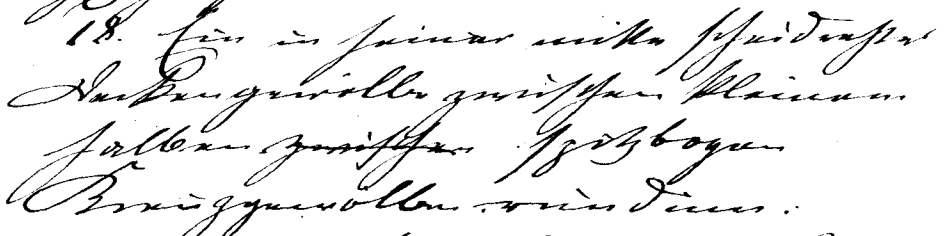 18. Ein in seiner mitte scheidrechtes
Deckengewölbe zwischen kleinen
halben zwischen spitzbogen
Kreuzgewölben rundum.